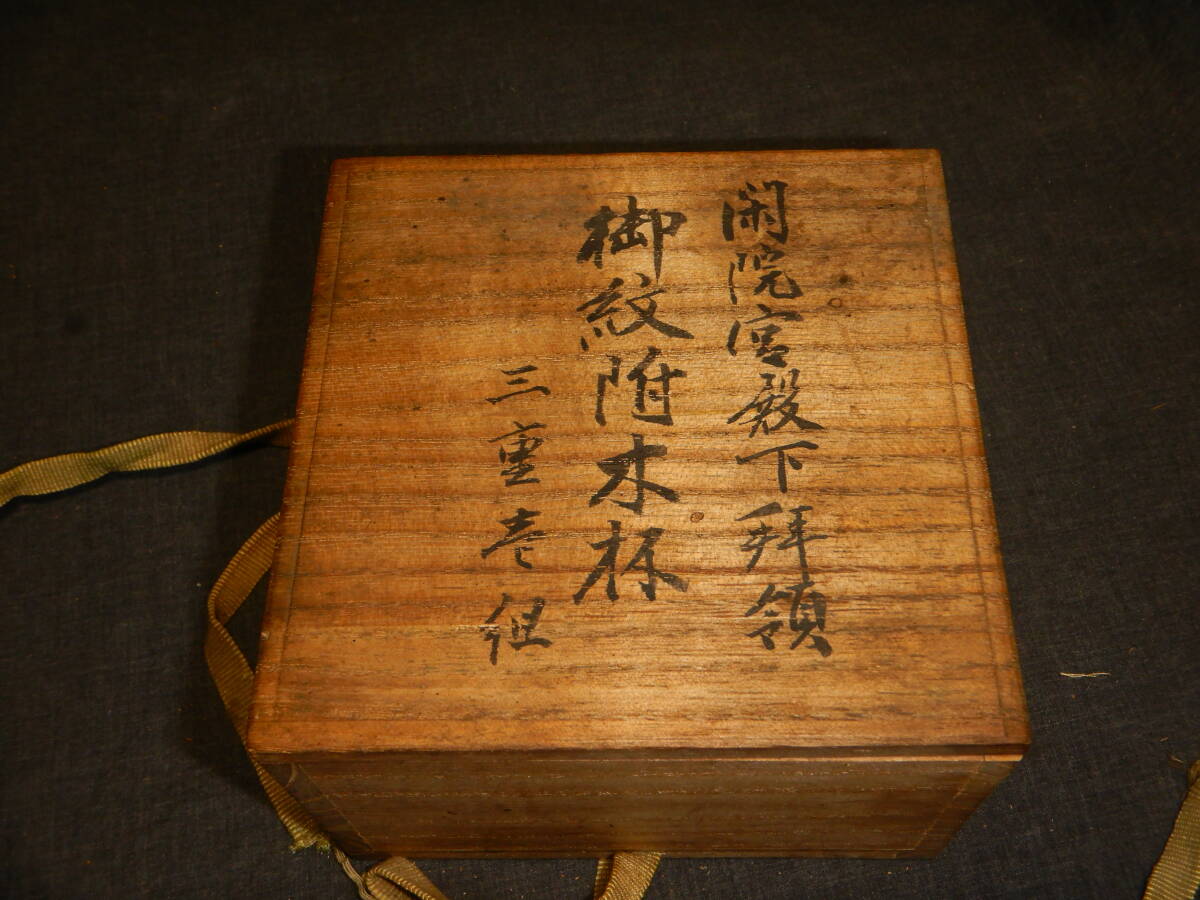 閑院宮殿下拝領
御紋附木杯
三重壱組